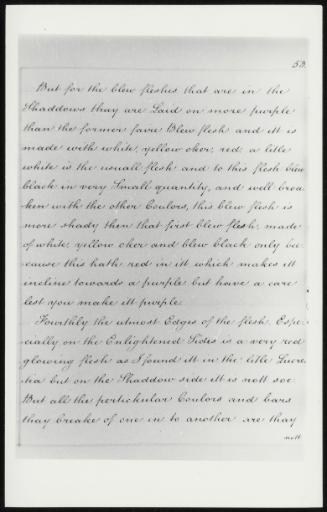 53.
But for the blew fleshes that are in the
Shaddows thay are Laid on more purple
than the former faire Blew flesh and itt is
made with white, yellow oker, red: a litle
white is the usuall flesh and to this flesh blew
black in very Small quantity, and well broa
ken with the other Coulors, this blew flesh is
more shady then that first blew flesh, made
of white, yellow oker and blew black only be
cause this hath red in itt which makes itt
incline towards a purple but have a care
lest you make itt purple
Fourthly the utmost Edges of the flesh. Espe
cially on the Enlightened Sides is a very red
glowing flesh as I found itt in the litle Lucre
tia but on the Shaddow side itt is nott soe
But all the pertickular Coulors and bars
thay breake of one in to another are thay
nott